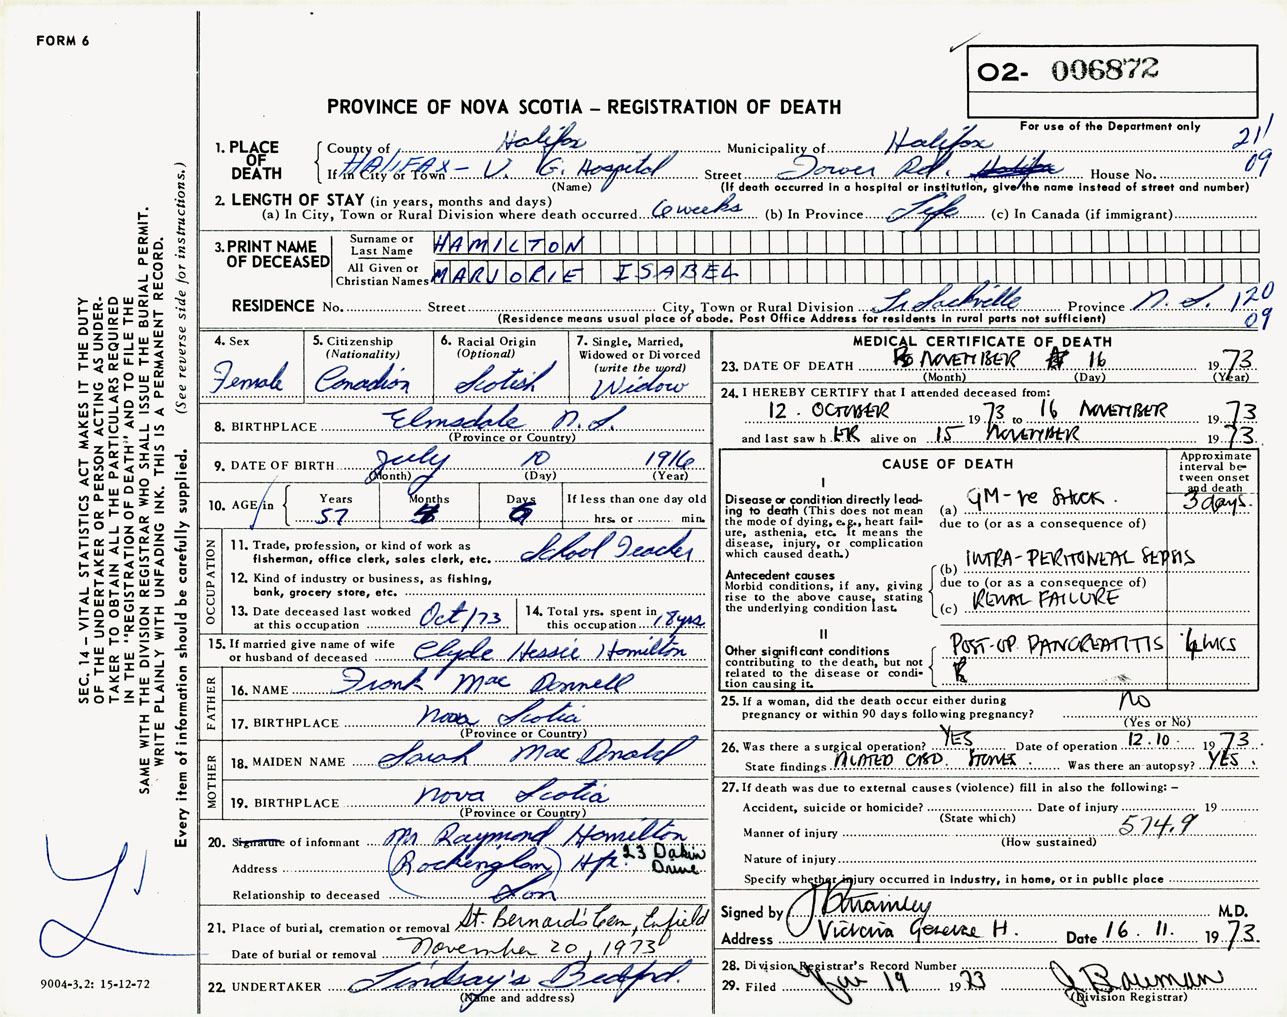 FORM 6
O2- 006872
PROVINCE OF NOVA SCOTIA — REGISTRATION OF DEATH
For use of the Department only
21
09
1. PLACE OF DEATH
County of Halifax Municipality of Halifax
If in City or Town HALIFAX - V. G. Hospital Street Tower Rd. Halifax House No.
(Name) (If death occurred in a hospital or institution, give the name instead of street and number)
2. LENGTH OF STAY (in years, months and days)
(a) In City, Town or Rural Division where death occurred 6 weeks (b) In Province Life (c) In Canada (if immigrant)
3. PRINT NAME OF DECEASED
Surname or Last Name HAMILTON
All Given or Christian Names MARJORIE ISABEL
RESIDENCE No. Street City, Town or Rural Division Lr. Sackville Province N. S. 120
09
(Residence means usual place of abode. Post Office Address for residents in rural parts not sufficient)
4. Sex Female
5. Citizenship (Nationality) Canadian
6. Racial Origin (Optional) Scotish
7. Single, Married, Widowed or Divorced (write the word) Widow
8. BIRTHPLACE Elmsdale N. S.
(Province or Country)
9. DATE OF BIRTH July 10 1916
(Month) (Day) (Year)
10. AGE in Years 57 Months 4 Days 6 If less than one day old hrs. or min.
OCCUPATION
11. Trade, profession, or kind of work as fisherman, office clerk, sales clerk, etc. School Teacher
12. Kind of industry or business, as fishing, bank, grocery store, etc.
13. Date deceased last worked at this occupation Oct/73
14. Total yrs. spent in this occupation 18 yrs.
15. If married give name of wife or husband of deceased Clyde Hessie Hamilton
FATHER
16. NAME Frank Mac Donnell
17. BIRTHPLACE Nova Scotia
(Province or Country)
MOTHER
18. MAIDEN NAME Sarah Mac Donald
19. BIRTHPLACE Nova Scotia
(Province or Country)
20. Signature of informant Mr Raymond Hamilton
Address (Rockingham) Hfx. 23 Dakin Drive
Relationship to deceased Son
21. Place of burial, cremation or removal St. Bernard's Cem, Enfield
Date of burial or removal November 20, 1973
22. UNDERTAKER Lindsay's Bedford.
(Name and address)
MEDICAL CERTIFICATE OF DEATH
23. DATE OF DEATH NOVEMBER 16 1973
(Month) (Day) (Year)
24. I HEREBY CERTIFY that I attended deceased from:
12. OCTOBER 1973 to 16 NOVEMBER 1973
and last saw h ER alive on 15 NOVEMBER 1973.
CAUSE OF DEATH
Approximate interval between onset and death
I
Disease or condition directly leading to death (This does not mean the mode of dying, e.g., heart failure, asthenia, etc. It means the disease, injury, or complication which caused death.)
(a) GM-ve SHOCK 3 days.
due to (or as a consequence of)
Antecedent causes
Morbid conditions, if any, giving rise to the above cause, stating the underlying condition last.
(b) INTRA-PERITONEAL SEPSIS
due to (or as a consequence of)
(c) RENAL FAILURE
II
Other significant conditions contributing to the death, but not related to the disease or condition causing it.
POST-OP. PANCREATITIS 4 WKS
25. If a woman, did the death occur either during pregnancy or within 90 days following pregnancy? NO
(Yes or No)
26. Was there a surgical operation? YES Date of operation 12.10. 1973
State findings DILATED CBD. STONES. Was there an autopsy? YES.
27. If death was due to external causes (violence) fill in also the following: —
Accident, suicide or homicide? Date of injury 19
(State which)
Manner of injury 574.9
(How sustained)
Nature of injury
Specify whether injury occurred in industry, in home, or in public place
Signed by M.D.
Address Victoria General H. Date 16. 11. 1973.
28. Division Registrar's Record Number
29. Filed 19 1973 J Bauman
(Division Registrar)
SEC. 14 — VITAL STATISTICS ACT MAKES IT THE DUTY
OF THE UNDERTAKER OR PERSON ACTING AS UNDER-
TAKER TO OBTAIN ALL THE PARTICULARS REQUIRED
IN THE "REGISTRATION OF DEATH" AND TO FILE THE
SAME WITH THE DIVISION REGISTRAR WHO SHALL ISSUE THE BURIAL PERMIT.
WRITE PLAINLY WITH UNFADING INK. THIS IS A PERMANENT RECORD.
Every item of information should be carefully supplied. (See reverse side for instructions.)
9004-3.2: 15-12-72